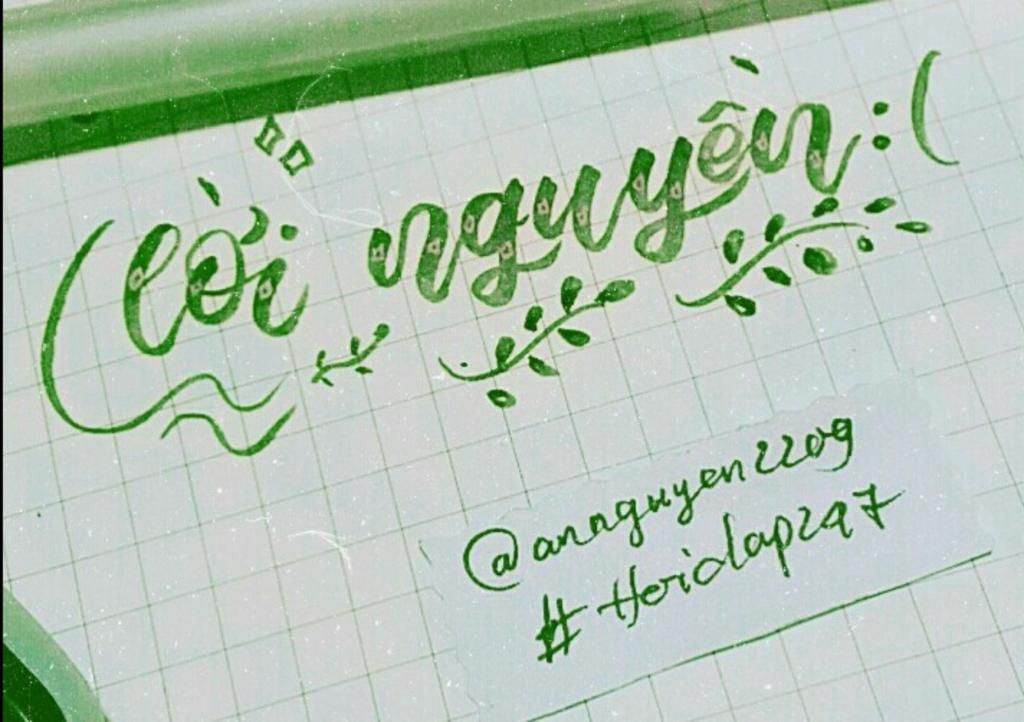 lời nguyền :(
@annguyen2209
#Hoidap247